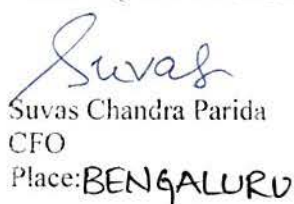 Suvas
Suvas Chandra Parida
CFO
Place:BENGALURU